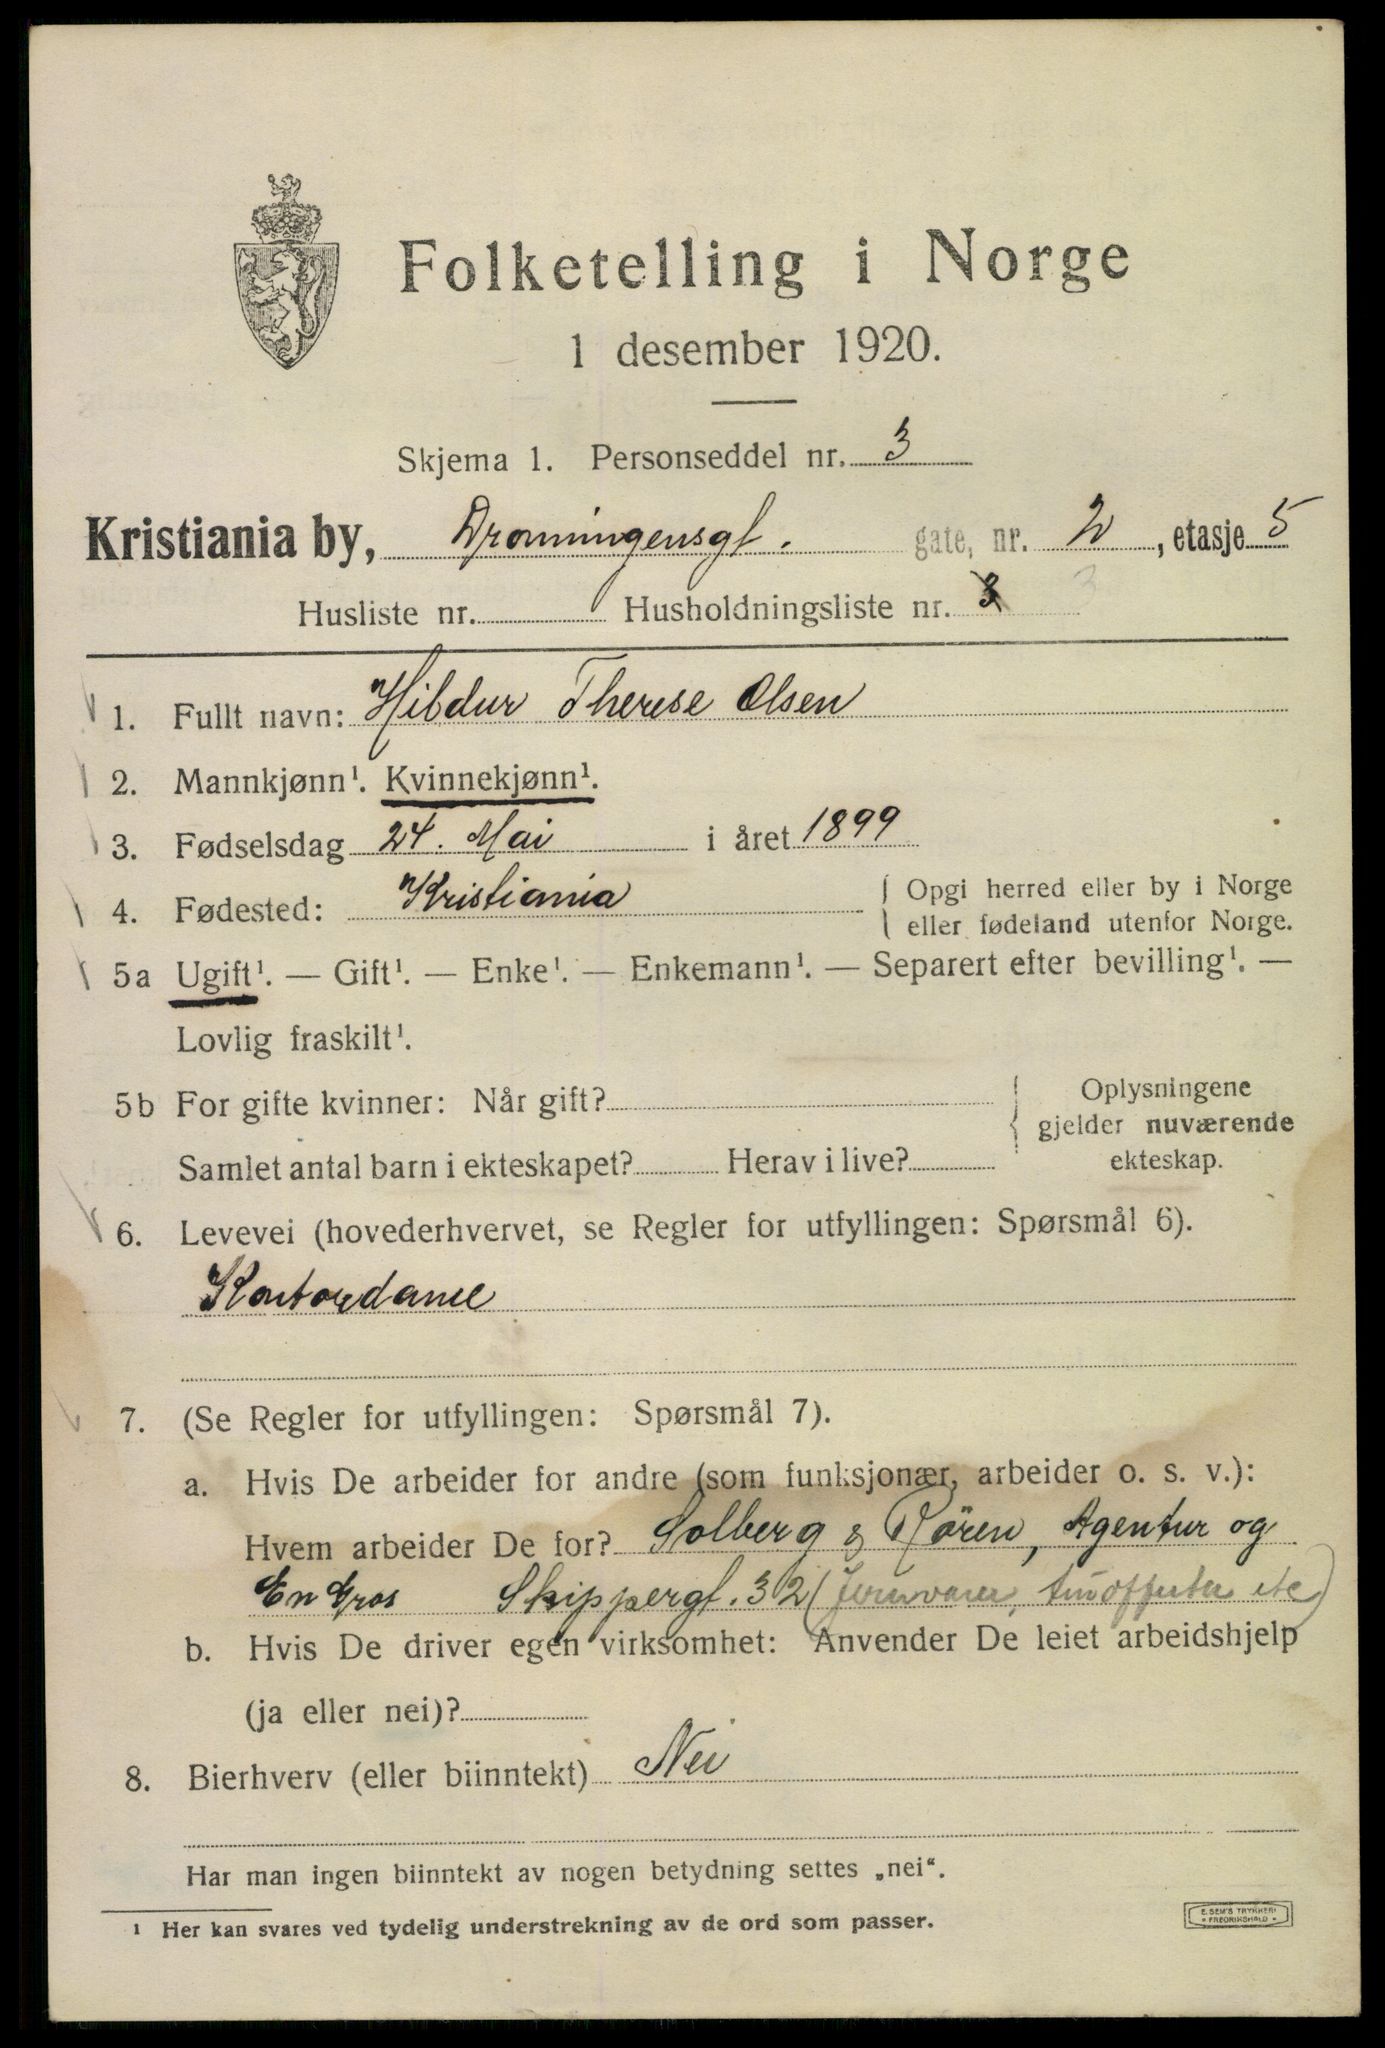 Folketelling i Norge
1 desember 1920.
Skjema 1. Personseddel nr. 3
Kristiania by, Dronningensgt. gate, nr. 2, etasje 5
Husliste nr. Husholdningsliste nr. 3 3
1. Fullt navn: Hildur Therese Olsen
2. Mannkjønn¹. Kvinnekjønn¹.
3. Fødselsdag 24. Mai i året 1899
4. Fødested: Kristiania { Opgi herred eller by i Norge
eller fødeland utenfor Norge.
5a Ugift¹. — Gift¹. — Enke¹. — Enkemann¹. — Separert efter bevilling¹. —
Lovlig fraskilt¹.
5b For gifte kvinner: Når gift? { Oplysningene
gjelder nuværende
Samlet antal barn i ekteskapet? Herav i live? ekteskap.
6. Levevei (hovederhvervet, se Regler for utfyllingen: Spørsmål 6).
Kontordame
7. (Se Regler for utfyllingen: Spørsmål 7).
a. Hvis De arbeider for andre (som funksjonær, arbeider o. s. v.):
Hvem arbeider De for? Solberg & Rören, Agentur og
En Gros Skippergt. 32 (Jernvarer, etc)
b. Hvis De driver egen virksomhet: Anvender De leiet arbeidshjelp
(ja eller nei)?
8. Bierhverv (eller biinntekt) Nei
Har man ingen biinntekt av nogen betydning settes „nei“.
¹ Her kan svares ved tydelig understrekning av de ord som passer.
E. SEM'S TRYKKERI
FREDRIKSHALD